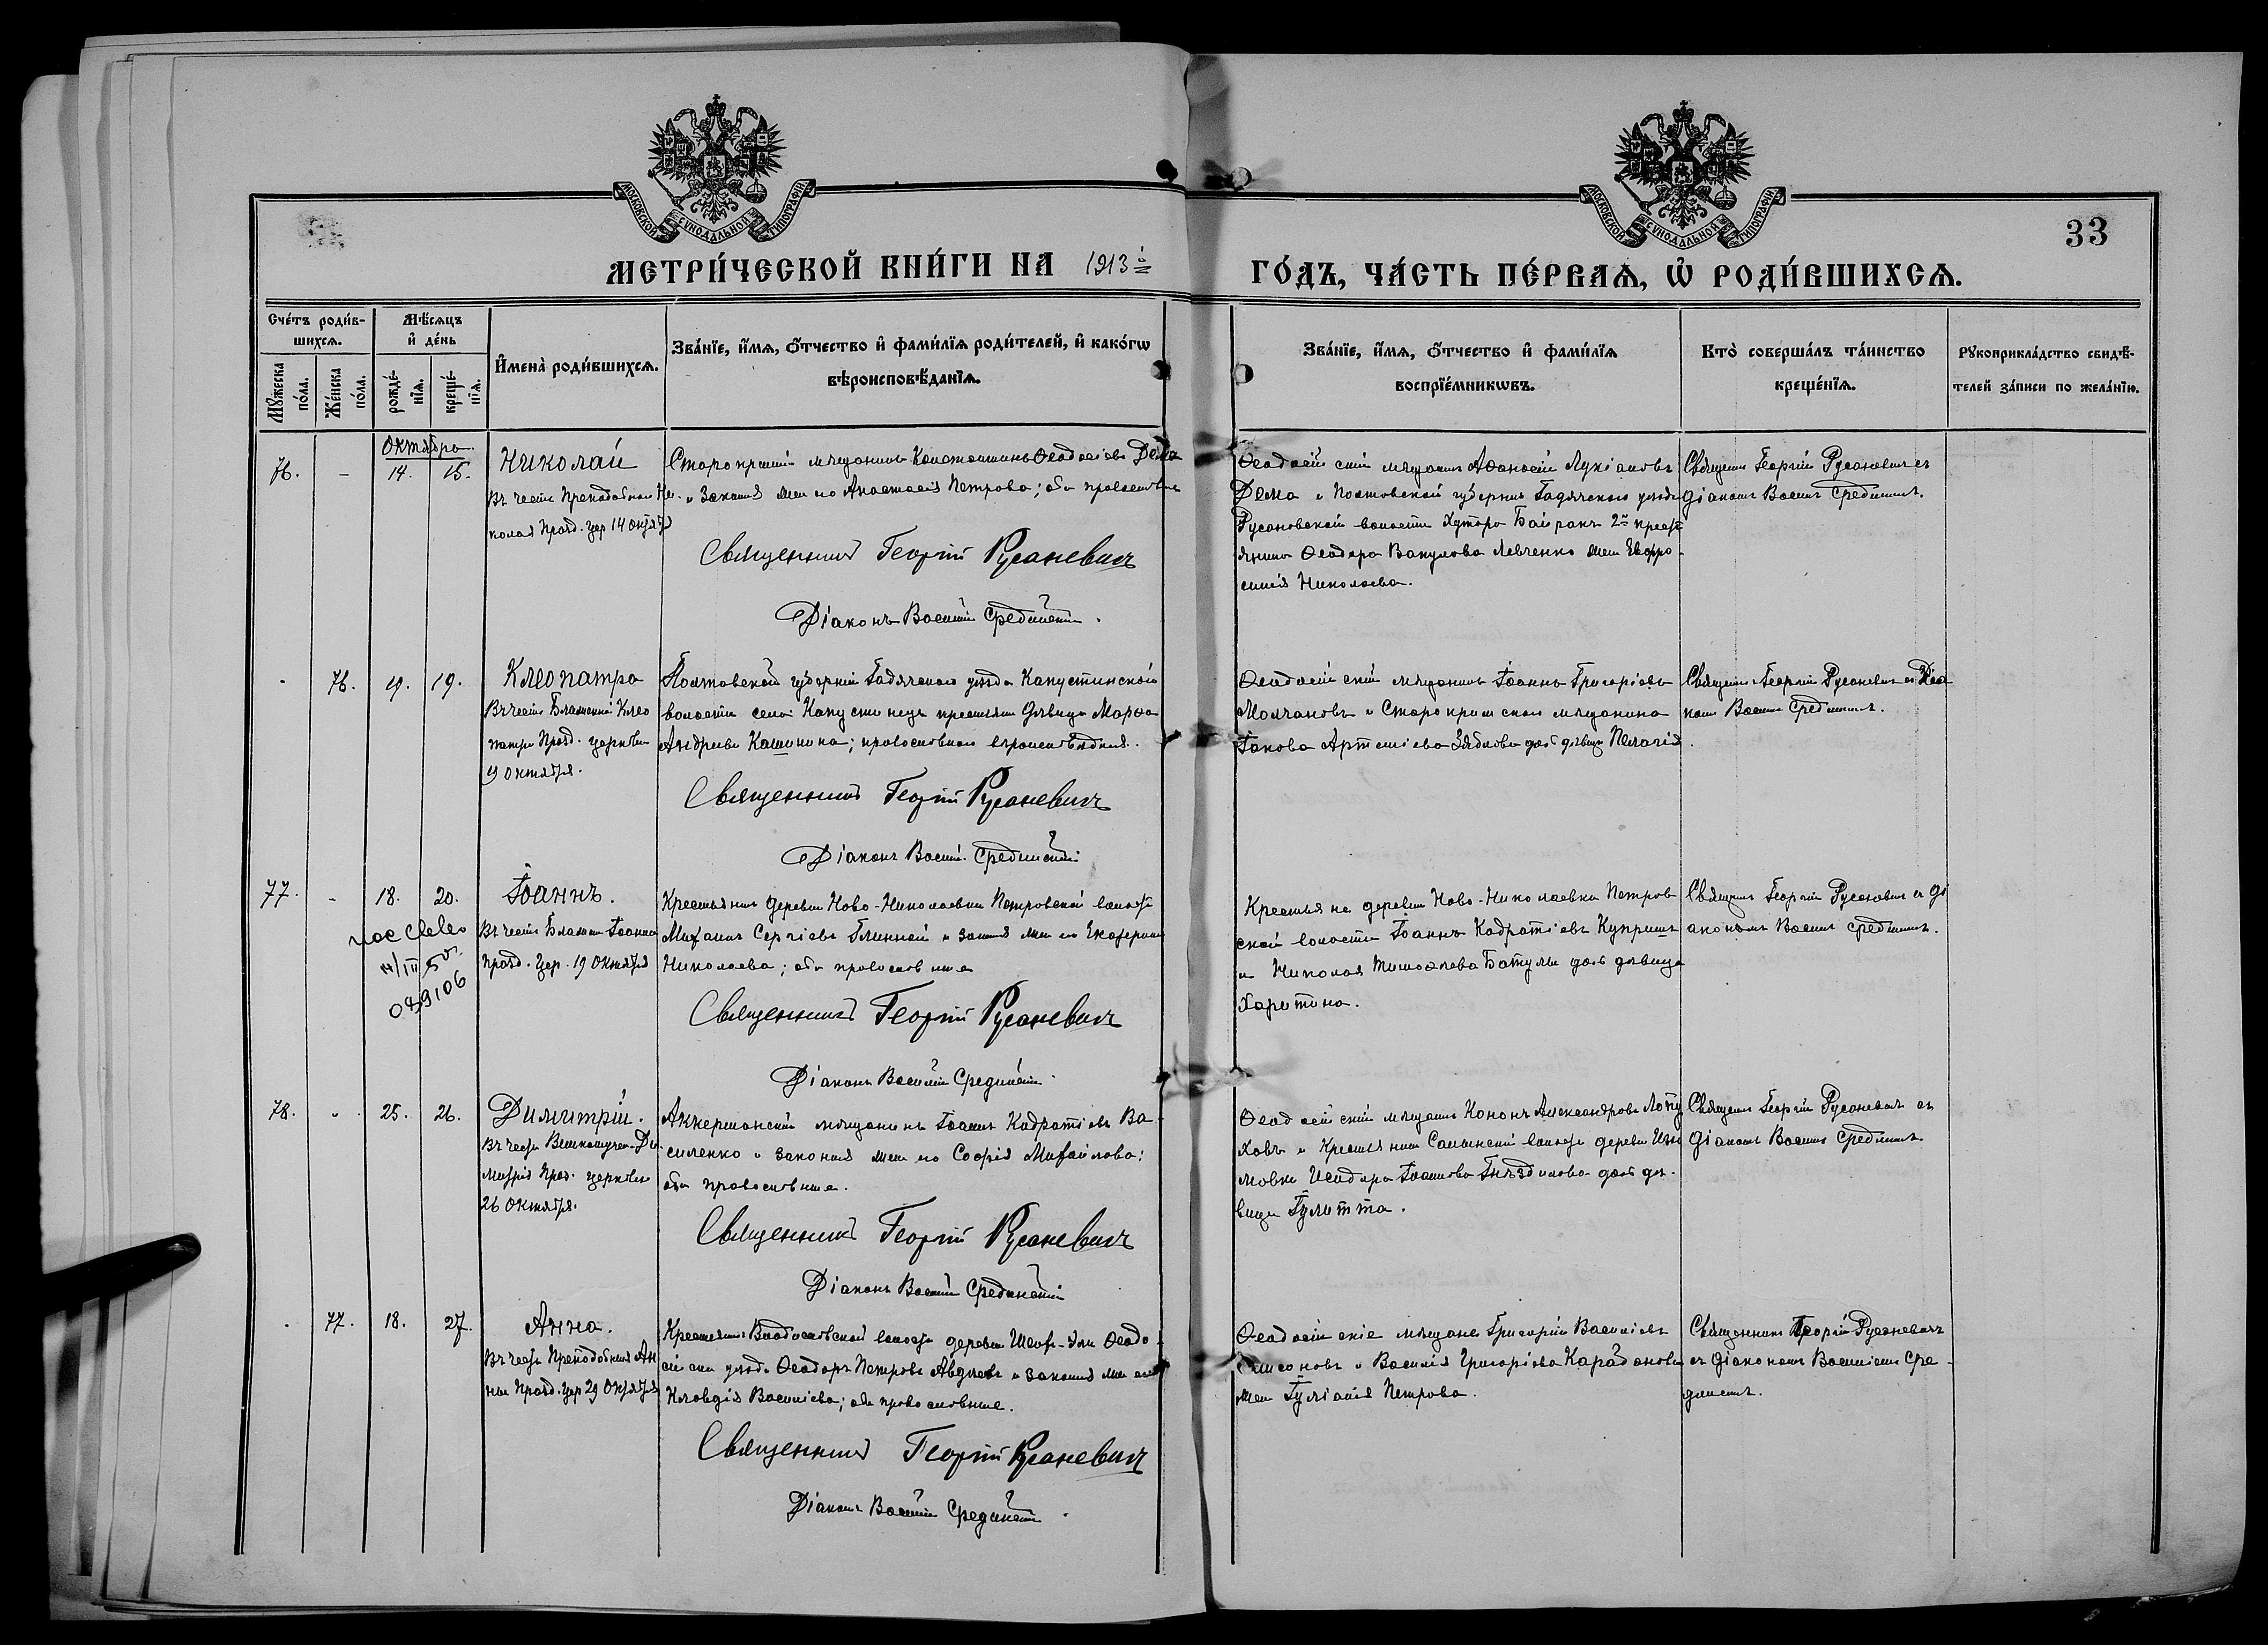 МОСКОВСКОЙ СУНОДАЛЬНОЙ ТИПОГРАФІИ
МОСКОВСКОЙ СУНОДАЛЬНОЙ ТИПОГРАФІИ
33
МЕТРИ́ЧЕСКОЙ КНИ́ГИ НА 1913й
ГО́ДЪ, ЧА́СТЬ ПЕ́РВАѦ, Ѡ҆ РОДИ́ВШИХСѦ.
Сче́тъ роди́в-
шихсѧ.
Мꙋ́жеска по́ла.
Же́нска по́ла.
Мѣ́сѧцъ
и҆ де́нь
рожде́-
нїѧ.
креще́-
нїѧ.
И҆мена̀ роди́вшихсѧ.
Зва́нїе, и҆́мѧ, ѻ҆́тчество и҆ фами́лїѧ роди́телей, и҆ како́гѡ
вѣроисповѣ́данїѧ.
Зва́нїе, и҆́мѧ, ѻ҆́тчество и҆ фами́лїѧ
воспрїе́мникѡвъ.
Кто̀ соверша́лъ та́инство
креще́нїѧ.
Рꙋкоприкла́дство свидѣ́-
телей за́писи по жела́нїю.
Октябрь
76. - 14. 15. Николай
Въ честь Преподобнаго Ни-
колая Празд. цер 14 октяб
Старокрымскій мѣщанинъ Константинъ Ѳеодосіевъ Дема
и законная жена его Анастасія Петрова; оба православные
Священникъ Георгій Русаневичъ
Діаконъ Василій Срединскій.
Ѳеодосійскій мѣщанинъ Аѳанасій Лукіановъ
Дема и Полтавской губерніи Гадячскаго уѣзда
Русановской волости Хутора Байракъ 2й крест
янина Ѳеодора Вакулова Левченко жена Евфро-
синія Николаева.
Священникъ Георгій Русаневичъ съ
діакономъ Василіемъ Срединскимъ.
- 76. 19. Клеопатра
Въ честь Блаженной Клео
патры Празд. церковью
19 Октября.
Полтавской губерніи Гадячскаго уѣзда Капустинской
волости села Капустинецъ крестьянка дѣвица Марѳа
Андреева; православнаго вѣроисповѣданія.
Священникъ Георгій Русаневичъ
Діаконъ Василій Срединскій
Ѳеодосійскій мѣщанинъ Іоаннъ Григоріевъ
Молчановъ и Старокрымскаго мѣщанина
Іакова Артеміева Зяблова дочь дѣвица Пелагія.
Священникъ Георгій Русаневичъ съ Діа
кономъ Василіемъ Срединскимъ.
77. - 18. 20. Іоаннъ.
Въ честь Блажен. Іоанна
празд. Цер. 19 Октября
089106
Крестьянинъ деревни Ново-Николаевки Петровской волости
Михаилъ Сергіевъ Глинной и законная жена его Екатерина
Николаева; оба православные
Священникъ Георгій Русаневичъ
Діаконъ Василій Срединскій.
Крестьяне деревни Ново-Николаевки Петров
ской волости Іоаннъ Кадратіевъ
и Николая Тимоѳеева дочь дѣвица
Харитина.
Священникъ Георгій Русаневичъ съ ді
акономъ Василіемъ Срединскимъ.
78. 25. 26. Димитрій.
Въ честь Великомучен. Ди-
митрія Праз. церковью
26 Октября.
Аккерманскій мѣщанинъ Іоаннъ Кадратіевъ Ва-
силенко и законная жена его Софія Михайлова;
оба православные.
Священникъ Георгій Русаневичъ
Діаконъ Василій Срединскій
Ѳеодосійскій мѣщанинъ Кононъ Александровъ
и крестьянина волости деревни
Исидора Іоаннова Гнѣздилова дочь дѣ-
вица Іулитта.
Священникъ Георгій Русаневичъ съ
діакономъ Василіемъ Срединскимъ
- 77. 18. 27. Анна.
Въ честь Преподобныя Ан
ны Празд. Цер 29 Октября
Крестьянинъ Владиславской волости деревни Шейх-Эли Ѳеодо-
сійскаго уѣзда Ѳеодоръ Петровъ Авдѣевъ и законная жена его
Клавдія Василіева; оба православные.
Священникъ Георгій Русаневичъ
Діаконъ Василій Срединскій.
Ѳеодосійскіе мѣщане Григорій Василіевъ
и Василія Григоріева
жена Іуліанія Петрова.
Священникъ Георгій Русаневичъ
съ діакономъ Василіемъ Сре-
динскимъ.